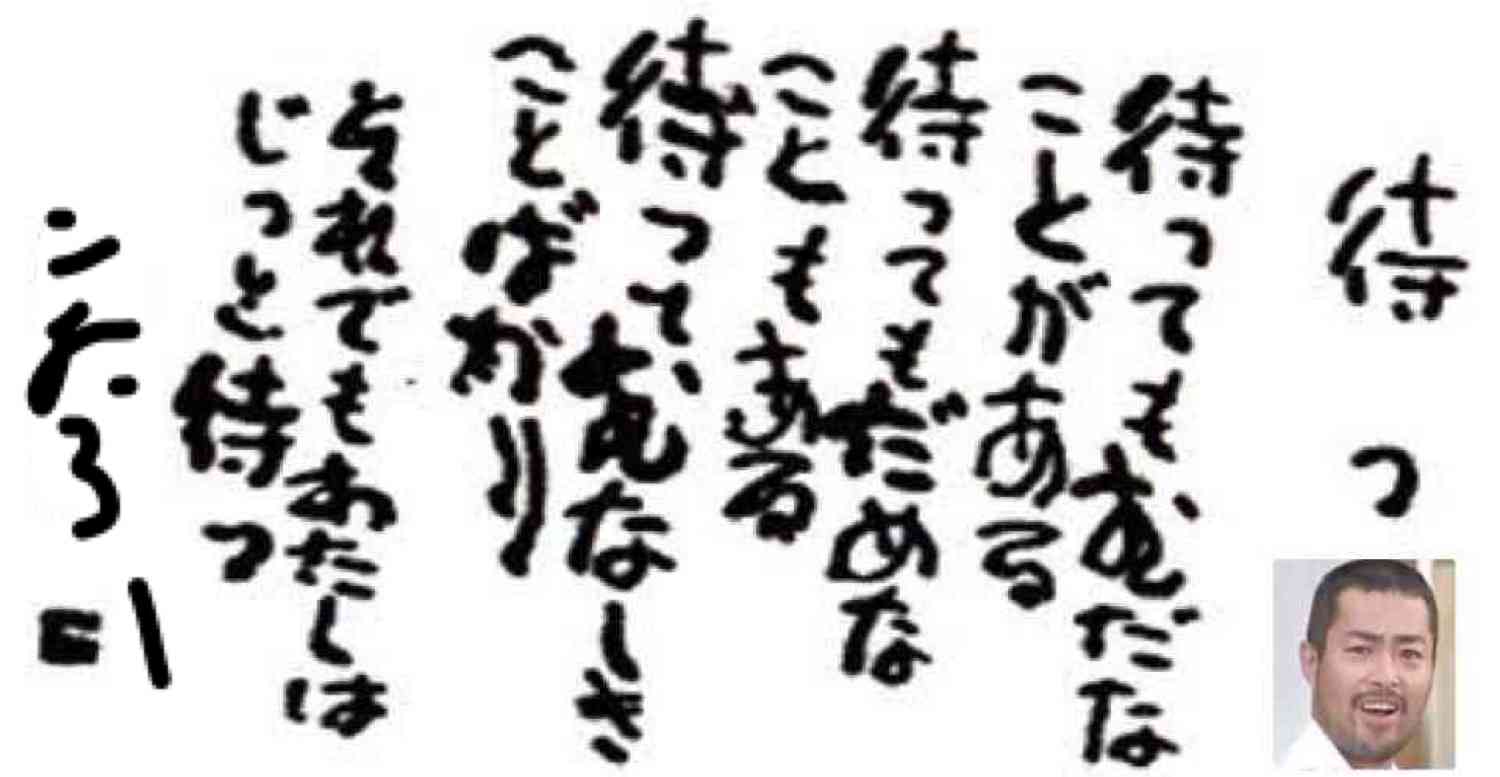 待つ
待ってもむだな
ことがある
待ってもだめな
こともある
待って、むなしき
ことばかり
それでもあたしは
じっと待つ